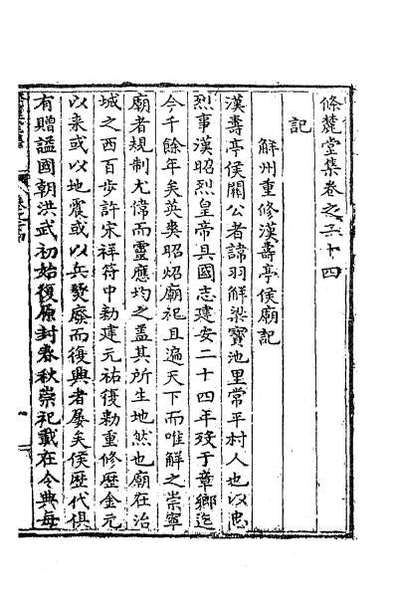 條麓堂集卷之二十四
記
解州重修漢壽亭侯廟記
漢壽亭侯關公者諱羽解梁寶池里常平村人也以忠
烈事漢昭烈皇帝具國志建安二十四年歿于章鄉迄
今千餘年矣英爽昭焰廟祀且遍天下而唯解之崇寧
廟者規制尤偉而靈應灼之蓋其所生地然也廟在治
城之西百步許宋祥符中勅建元祐復勅重修歷金元
以来或以地震或以兵燹廢而復興者屡矣侯歷代俱
有贈謚國朝洪武初始復原封春秋崇祀載在令典每